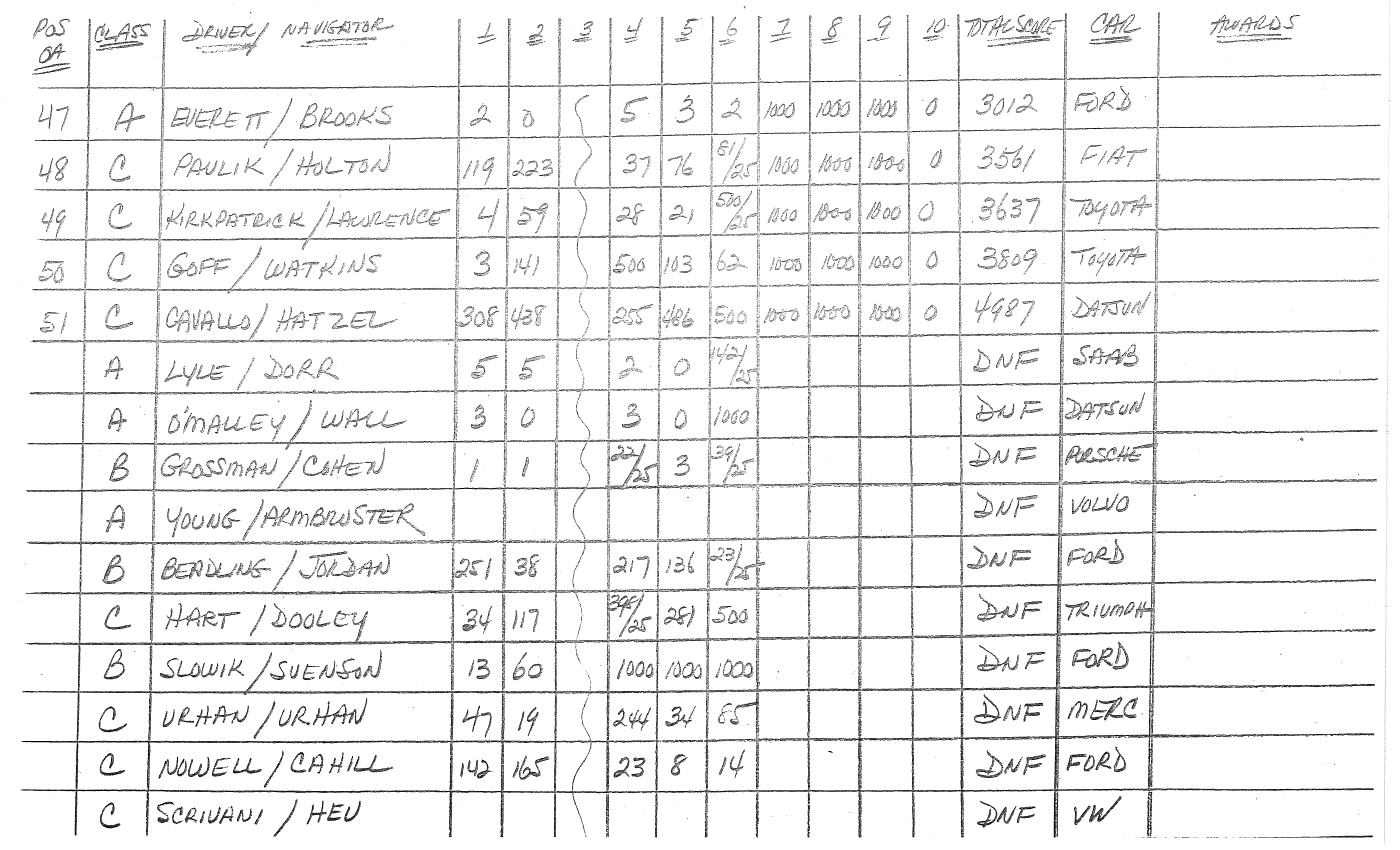 POS OA CLASS DRIVER/ NAVIGATOR 1 2 3 4 5 6 7 8 9 10 TOTAL SCORE CAR AWARDS
47 A EVERETT / BROOKS 2 0 5 3 2 1000 1000 1000 0 3012 FORD
48 C PAULIK / HOLTON 119 223 37 76 81/25 1000 1000 1000 0 3561 FIAT
49 C KIRKPATRICK / LAWRENCE 4 59 28 21 500/25 1000 1000 1000 0 3637 TOYOTA
50 C GOFF / WATKINS 3 141 500 103 62 1000 1000 1000 0 3809 TOYOTA
51 C CAVALLO / HATZEL 308 438 255 486 500 1000 1000 1000 0 4987 DATSUN
A LYLE / DORR 5 5 2 0 142/25 DNF SAAB
A O'MALLEY / WALL 3 0 3 0 1000 DNF DATSUN
B GROSSMAN / COHEN 1 1 22/25 3 39/25 DNF PORSCHE
A YOUNG / ARMBRUSTER DNF VOLVO
B BEADLING / JORDAN 251 38 217 136 23/25 DNF FORD
C HART / DOOLEY 34 117 398/25 281 500 DNF TRIUMPH
B SLOWIK / SVENSON 13 60 1000 1000 1000 DNF FORD
C URHAN / URHAN 47 19 244 34 85 DNF MERC
C NOWELL / CAHILL 142 165 23 8 14 DNF FORD
C SCRIVANI / HEV DNF VW